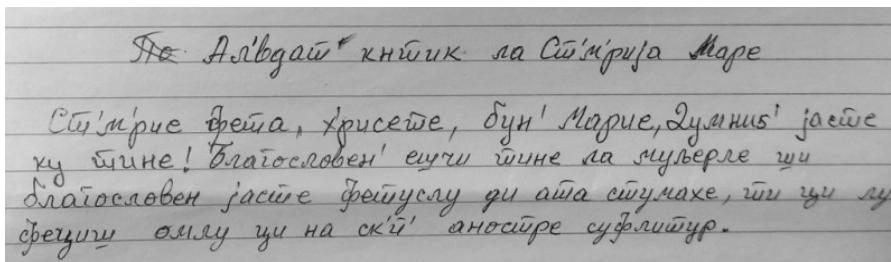 Ал'вдат' кнтик ла Ст'м'рија Маре
Ст'м'рие фета, х'рисете, бун' Марие, Думниѕ' јасте
ку тине! Благословен' ешчи тине ла муљерле ши
благословен јасте фетуслу ди ата стумахе, ти ци лу
фециш омлу ци на ск'п' аностре суфлитур.